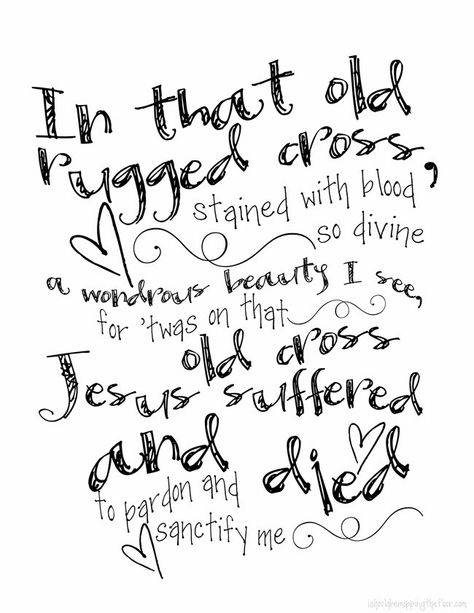 In that old
rugged cross,
stained with blood
so divine
a wondrous beauty I see,
for 'twas on that
old cross
Jesus suffered
and died
to pardon and
sanctify me
ishouldbemoppingthefloor.com